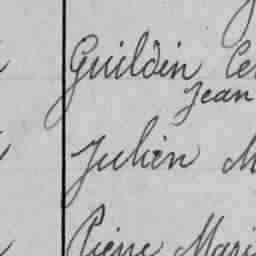 Guildin Ce
Jean
Julien M
Pierre Mari